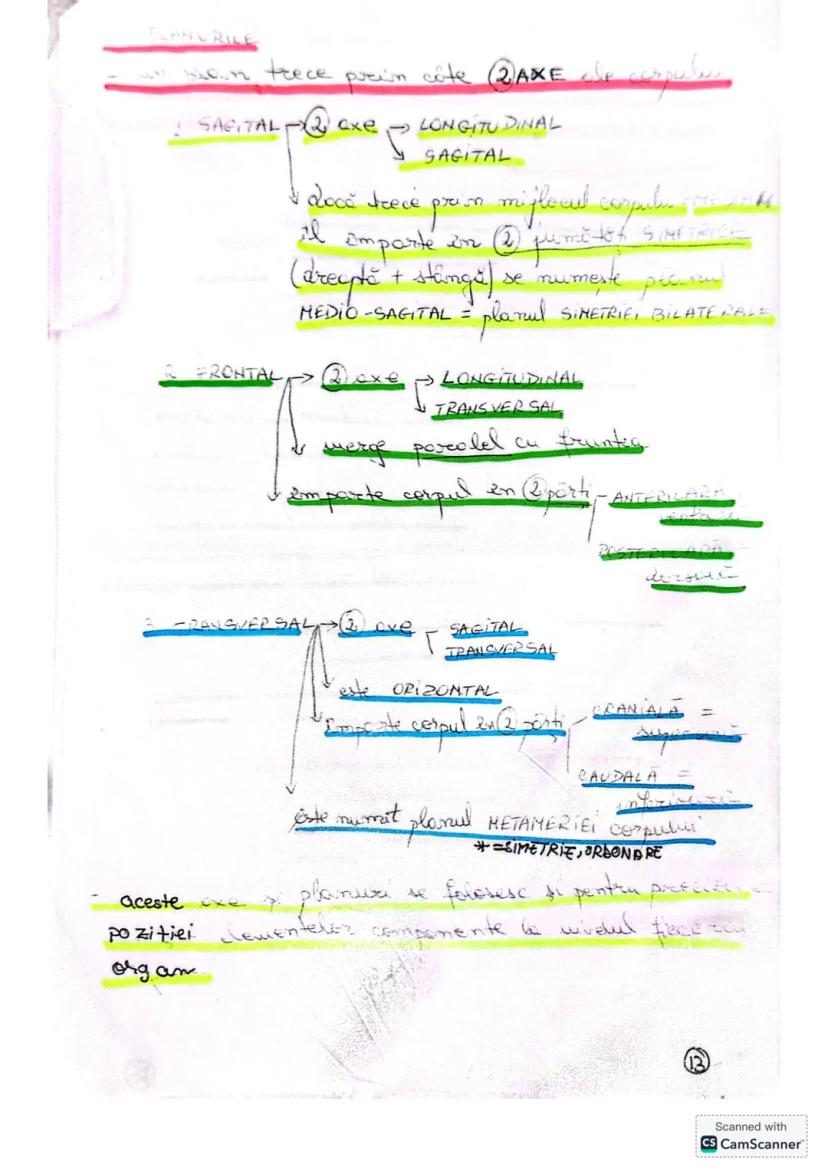 PLANURILE
- un plan trece prin câte 2 AXE ale corpului
1 SAGITAL → 2 axe → LONGITUDINAL
SAGITAL
dacă trece prin mijlocul corpului
îl împarte în 2 jumătăți SIMETRICE
(dreaptă + stângă) se numește planul
MEDIO-SAGITAL = planul SIMETRIEI BILATERALE
2 FRONTAL → 2 axe → LONGITUDINAL
TRANSVERSAL
merge paralel cu fruntea
împarte corpul în 2 părți - ANTERIOARĂ
ventrală
POSTERIOARĂ
dorsală
3 TRANSVERSAL → 2 axe SAGITAL
TRANSVERSAL
este ORIZONTAL
împarte corpul în 2 părți CRANIALĂ =
superioară
CAUDALĂ =
inferioară
este numit planul METAMERIEI corpului
* = SIMETRIE, ORDONARE
- aceste axe și planuri se folosesc și pentru
poziției elementelor componente la nivelul
organ
13
Scanned with
CS CamScanner